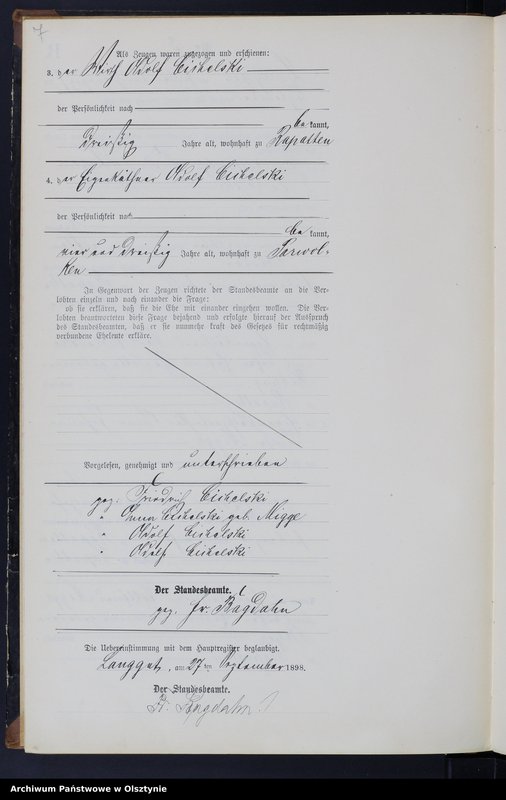 7
Als Zeugen waren zugezogen und erschienen:
3. der Wirth Adolf Cichelski
der Persönlichkeit nach
be kannt,
dreißig Jahre alt, wohnhaft zu Rapatten
4. der Eigenkäthner Adolf Cichelski
der Persönlichkeit nach
be kannt,
vier und dreißig Jahre alt, wohnhaft zu
ken
In Gegenwart der Zeugen richtete der Standesbeamte an die Ver-
lobten einzeln und nach einander die Frage:
ob sie erklären, daß sie die Ehe mit einander eingehen wollen. Die Ver-
lobten beantworteten diese Frage bejahend und erfolgte hierauf der Ausspruch
des Standesbeamten, daß er sie nunmehr kraft des Gesetzes für rechtmäßig
verbundene Eheleute erkläre.
Vorgelesen, genehmigt und unterschrieben
gez. Friedrich Cichelski
" Anna Cichelski geb. Migge
" Adolf Cichelski
" Adolf Cichelski
Der Standesbeamte.
gez. Fr. Bagdahn
Die Uebereinstimmung mit dem Hauptregister beglaubigt.
Langgut, am 27 ten September 1898.
Der Standesbeamte.
Fr. Bagdahn
Archiwum Państwowe w Olsztynie